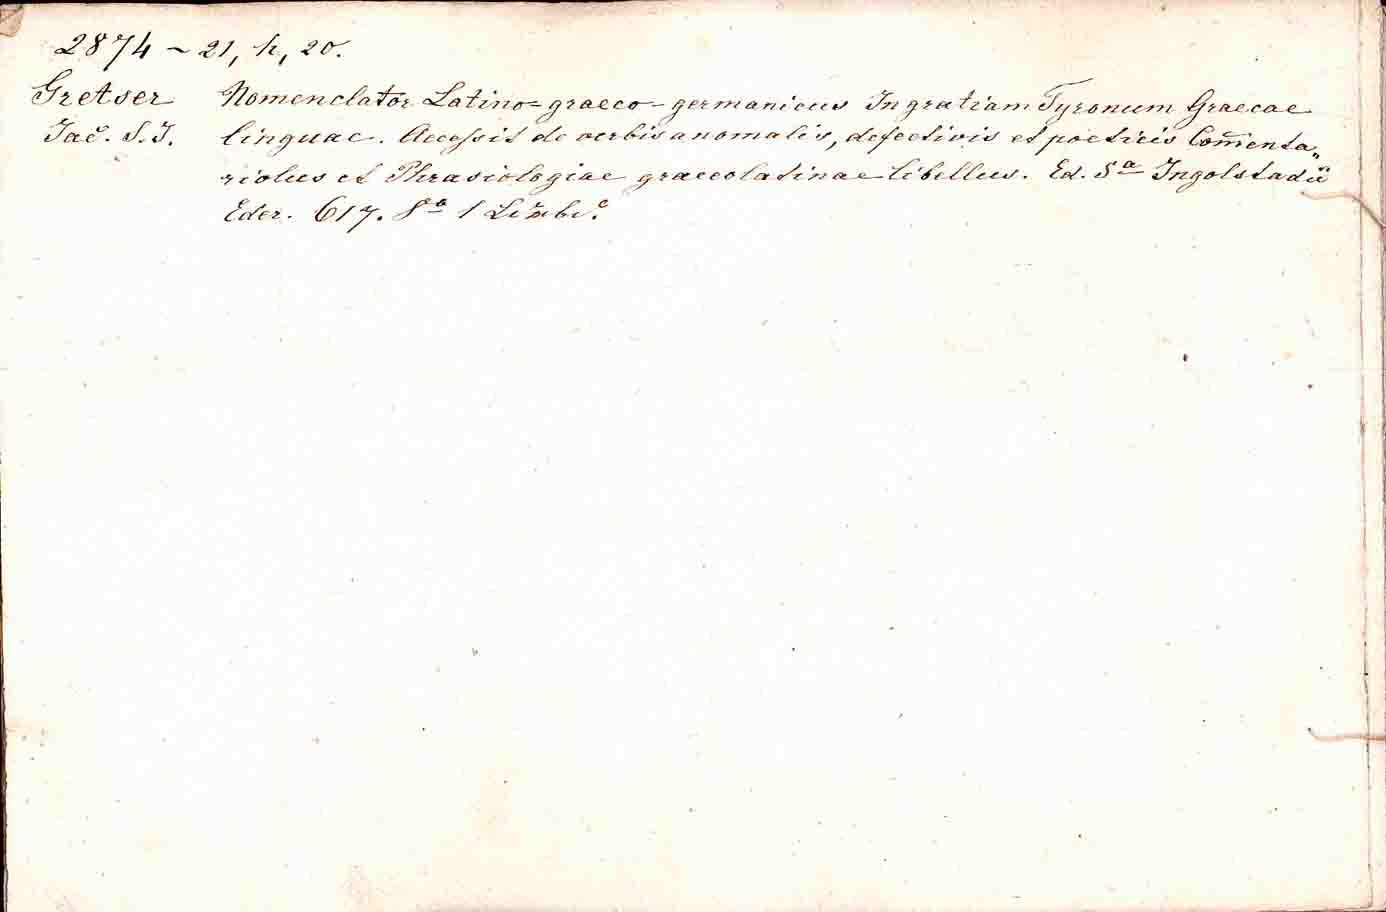 2874 ~ 21, h, 20.
Gretser Nomenclator Latino=graeco=germanicus In gratiam Tyronum Graecae
Jac. S. J. linguae. Accessit de verbis anomalis, defectivis et poeticis Com̄enta„
riolus et Phrasiologiae graecolatinae libellus. Ed. 5ª Ingolstadii
Eder. 617. 8º 1